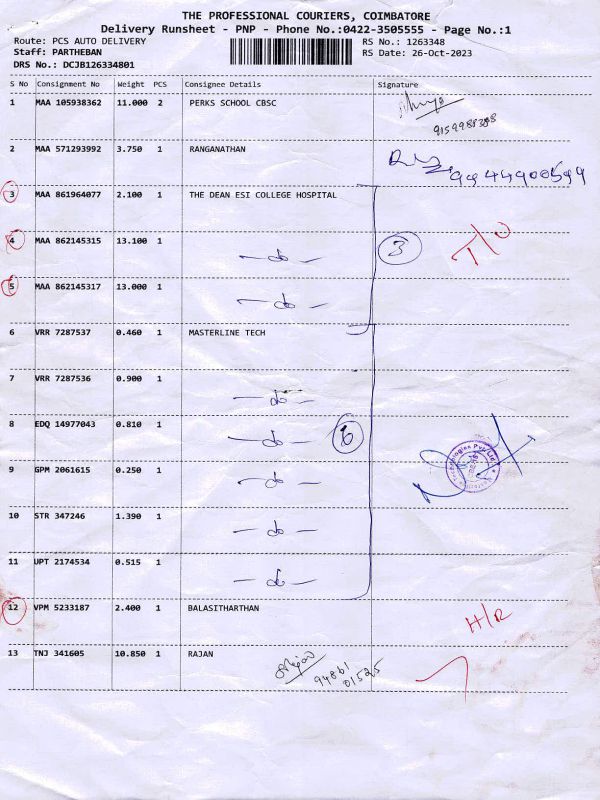 THE PROFESSIONAL COURIERS, COIMBATORE
Delivery Runsheet - PNP - Phone No.:0422-3505555 - Page No.:1
Route: PCS AUTO DELIVERY RS No.: 1263348
Staff: PARTHEBAN RS Date: 26-Oct-2023
DRS No.: DCJB126334801
S No Consignment No Weight PCS Consignee Details Signature
1 MAA 105938362 11.000 2 PERKS SCHOOL CBSC
2 MAA 571293992 3.750 1 RANGANATHAN
9944900599
3 MAA 861964077 2.100 1 THE DEAN ESI COLLEGE HOSPITAL
4 MAA 862145315 13.100 1 — do — 3 T/O
5 MAA 862145317 13.000 1 — do —
6 VRR 7287537 0.460 1 MASTERLINE TECH
7 VRR 7287536 0.900 1 — do —
8 EDQ 14977043 0.810 1 — do — 6
9 GPM 2061615 0.250 1 — do —
10 STR 347246 1.390 1 — do —
11 UPT 2174534 0.515 1 — do —
12 VPM 5233187 2.400 1 BALASITHARTHAN H/R
13 TNJ 341605 10.850 1 RAJAN
94861
01525